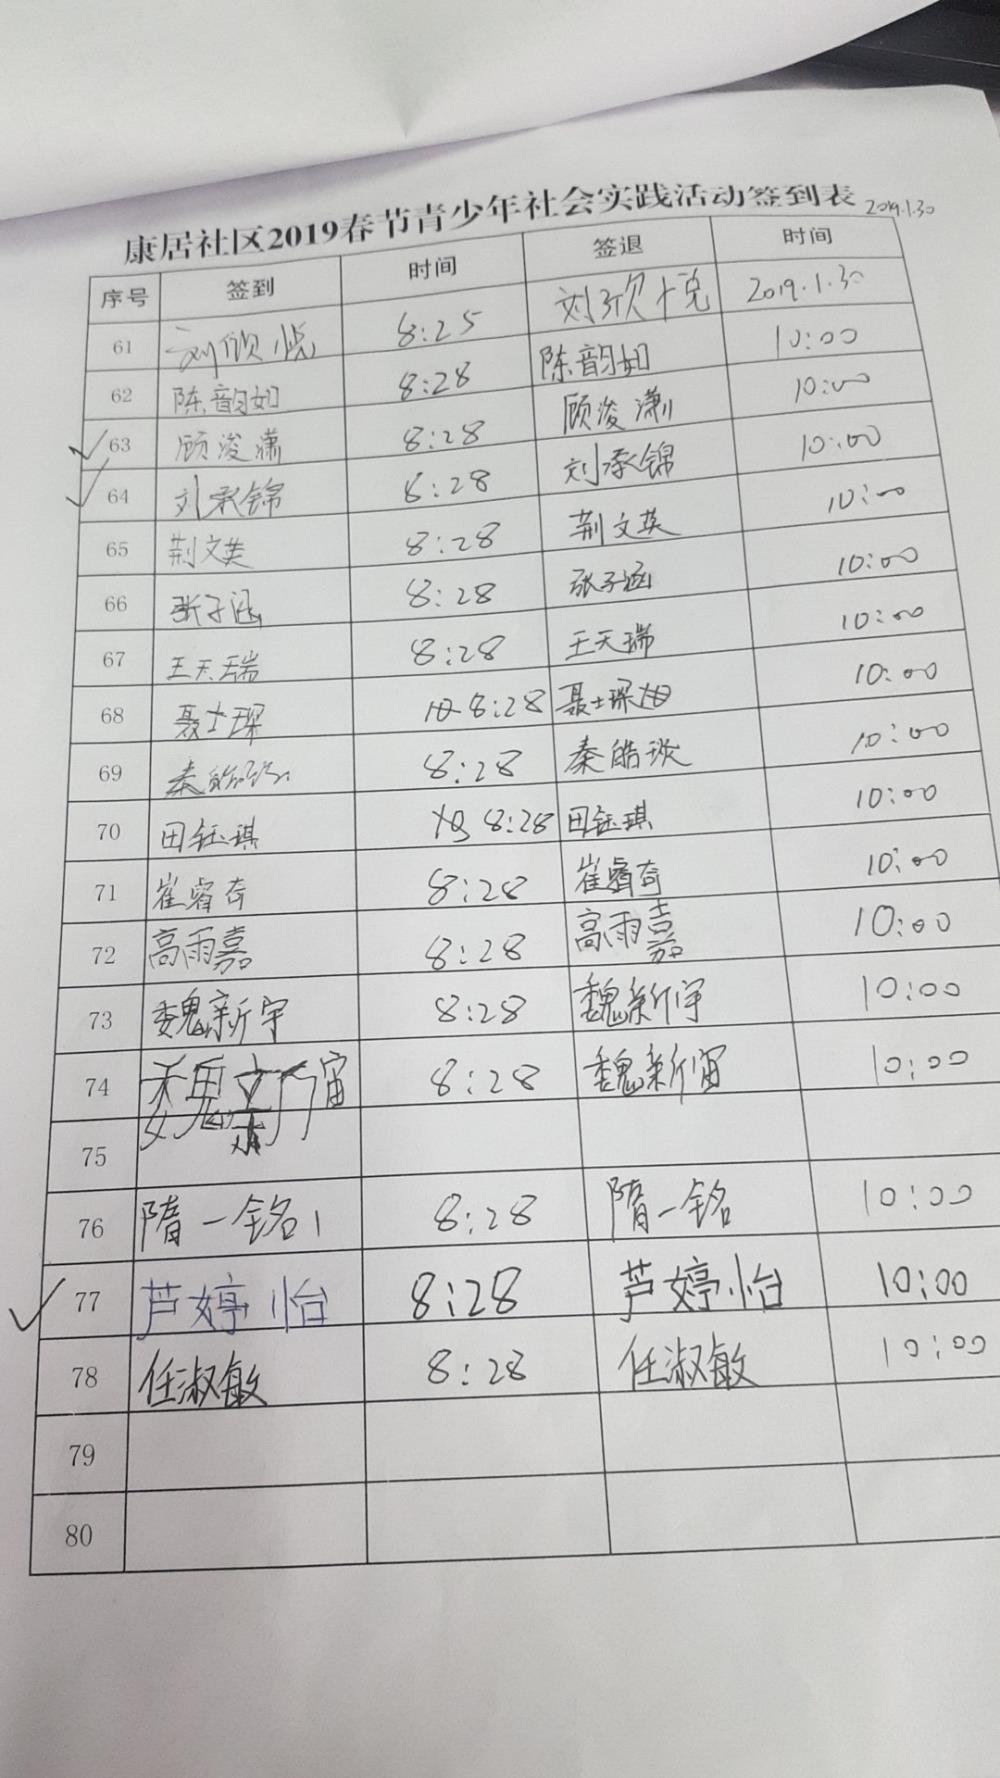 康居社区2019春节青少年社会实践活动签到表 2019.1.30
序号 签到 时间 签退 时间
61 刘欣悦 8:25 刘欣悦 2019.1.30
62 陈韵如 8:28 陈韵如 10:00
63 顾浚潇 8:28 顾浚潇 10:00
64 刘承锦 8:28 刘承锦 10:00
65 荆文英 8:28 荆文英 10:00
66 张子涵 8:28 张子涵 10:00
67 王天瑞 8:28 王天瑞 10:00
68 聂士琛 8:28 聂士琛 10:00
69 秦皓琰 8:28 秦皓琰 10:00
70 田钰琪 8:28 田钰琪 10:00
71 崔睿奇 8:28 崔睿奇 10:00
72 高雨嘉 8:28 高雨嘉 10:00
73 魏新宇 8:28 魏新宇 10:00
74 魏新宙 8:28 魏新宙 10:00
75
76 隋一铭 8:28 隋一铭 10:00
77 芦婷怡 8:28 芦婷怡 10:00
78 任淑敏 8:28 任淑敏 10:00
79
80